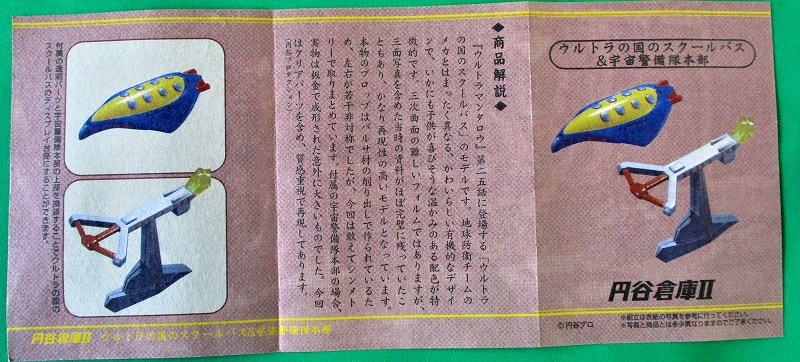 ウルトラの国のスクールバス
&宇宙警備隊本部
円谷倉庫II
©円谷プロ
※組立は表紙の写真を参考に行ってください。
※写真と商品とは多少異なりますのでご了承下さい。
◆商品解説◆
『ウルトラマンタロウ』第二五話に登場する「ウルトラ
の国のスクールバス」のモデルです。地球防衛チームの
メカとはまったく異なる、かわいらしい有機的なデザイ
ンで、いかにも子供が喜びそうな温かみのある配色が特
徴的です。三次曲面の難しいフォルムではありますが、
三面写真を含めた当時の資料がほぼ完璧に残っていたこ
ともあり、かなり再現性の高いモデルとなっています。
本物のプロップはバルサ材の削り出しで作られているた
め、左右が若干非対称でしたが、今回は敢えてシンメト
リーで取りまとめています。付属の宇宙警備隊本部の場合、
実物は板金で成形された意外に大きいものでした。今回
はクリアパーツを含め、質感重視で再現してあります。
(円谷プロダクション)
付属の透明パーツと宇宙警備隊本部の上部を換装することでウルトラの国の
スクールバスのディスプレイ台座にすることができます。
円谷倉庫II ウルトラの国のスクールバス&宇宙警備隊本部